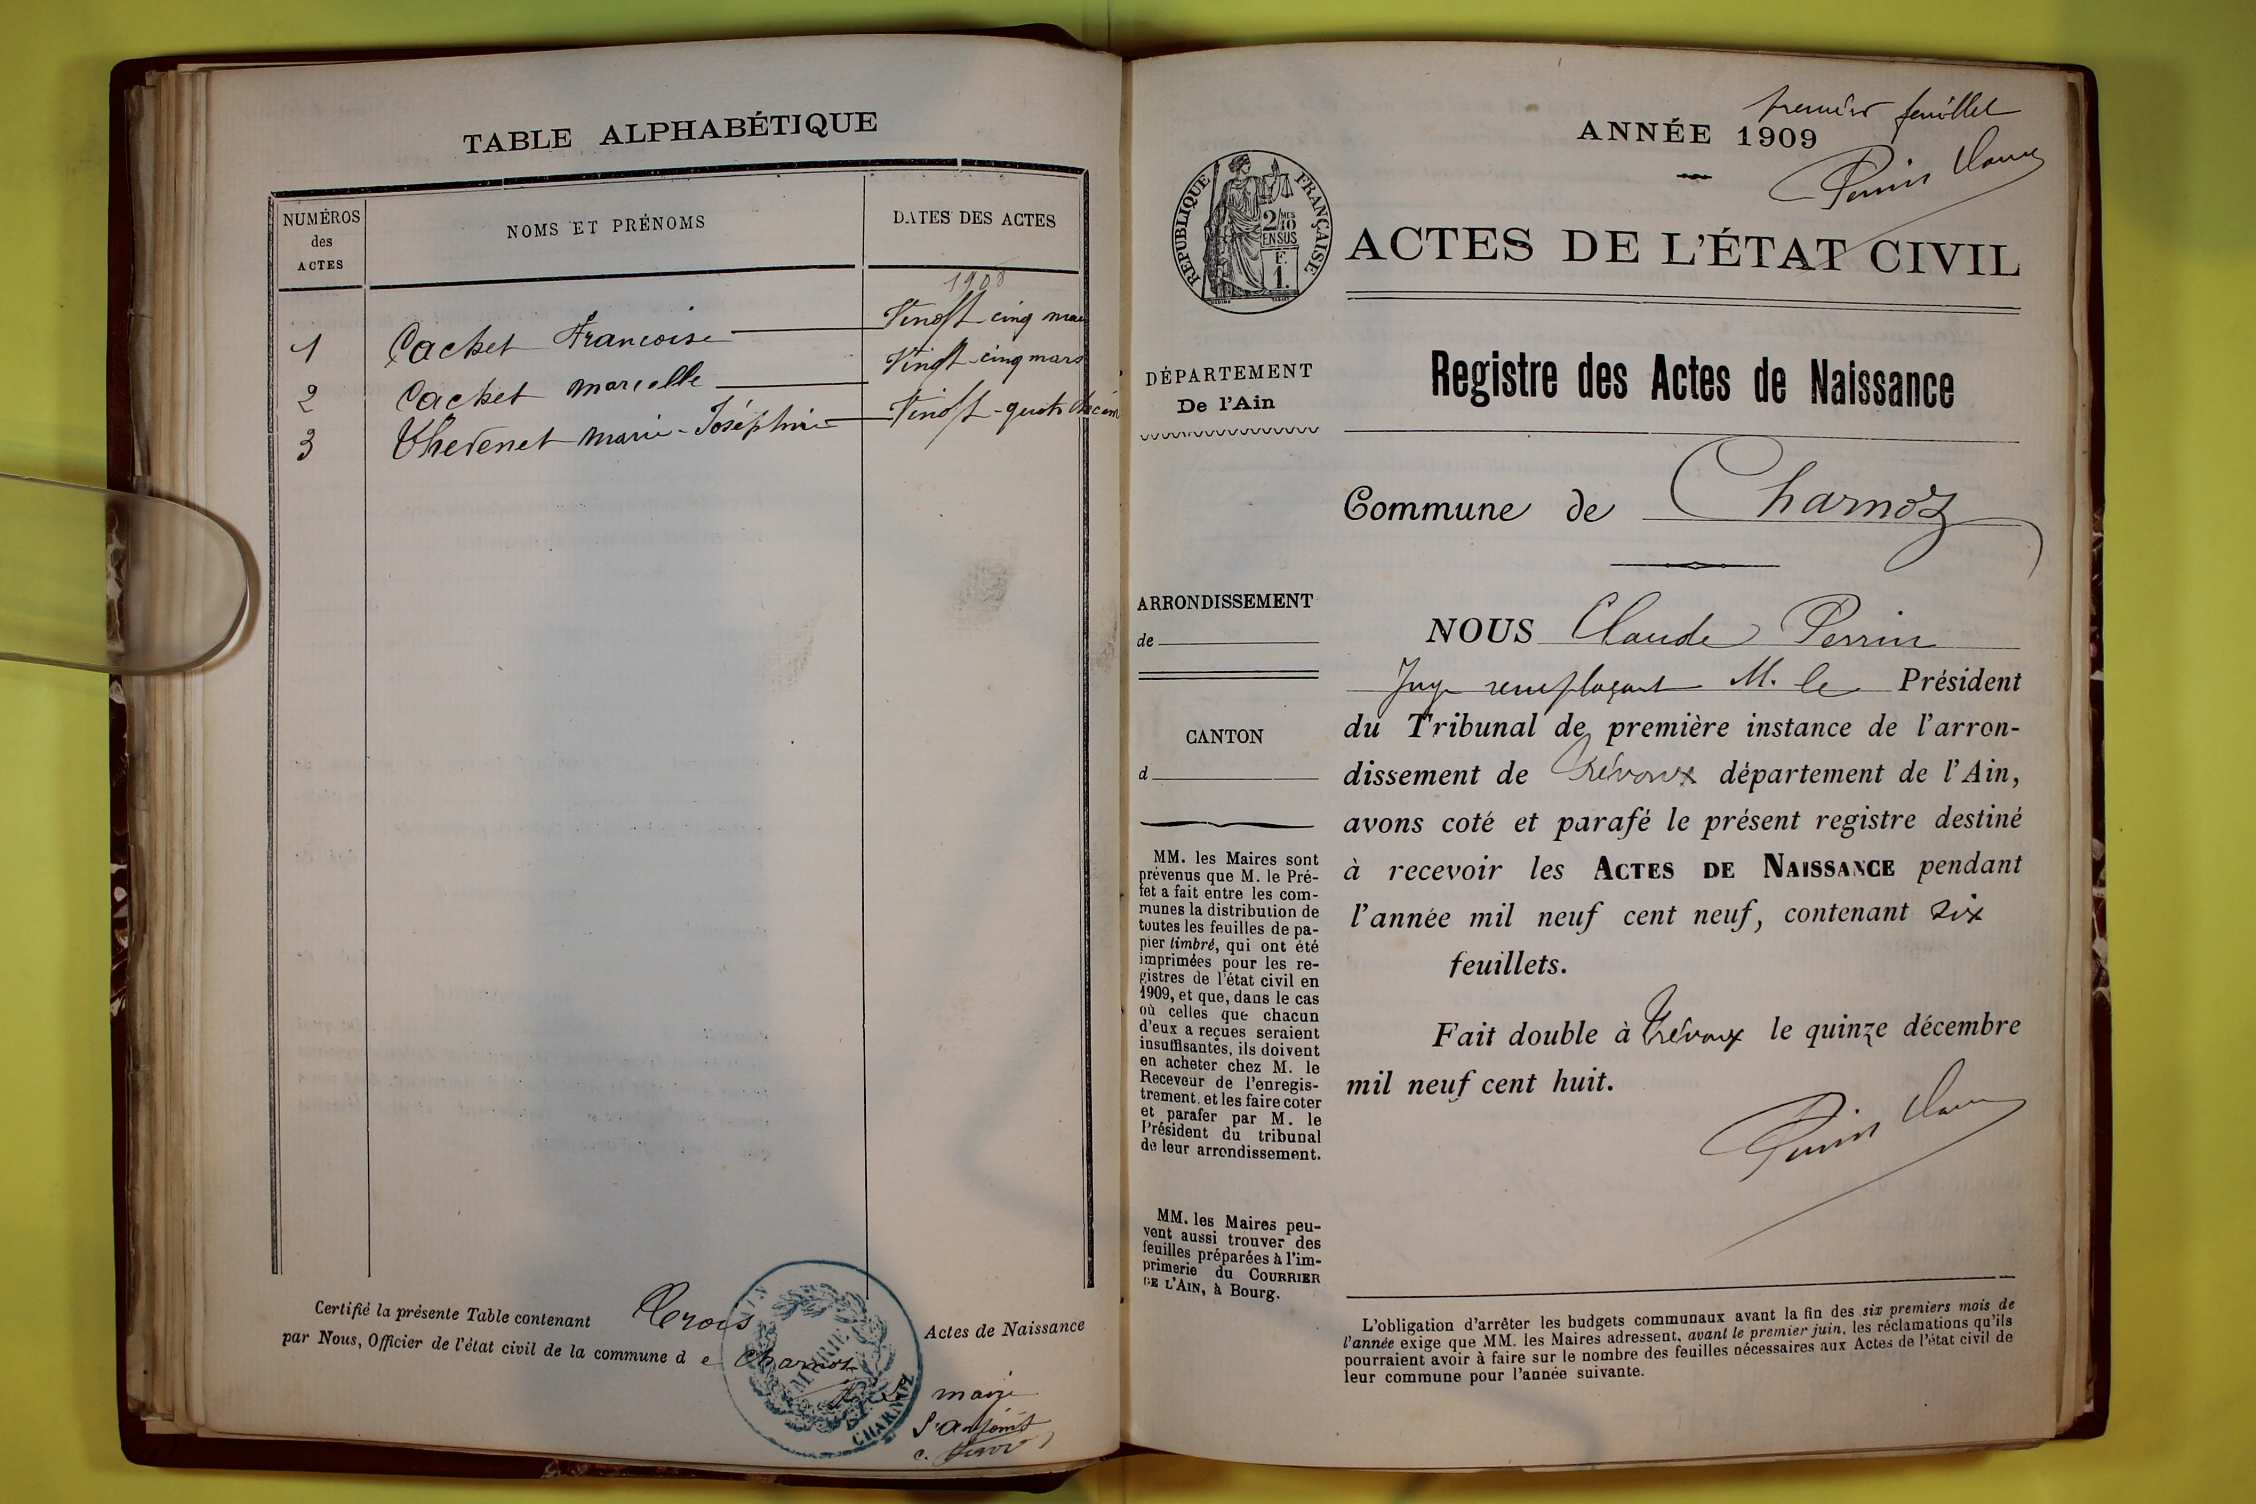 TABLE ALPHABÉTIQUE
NUMÉROS
des
ACTES
NOMS ET PRÉNOMS
DATES DES ACTES
1908
1 Cachet Francoise Vingt cinq mars
2 Cachet Marcelle Vingt cinq mars
3 Thevenet Marie-Joséphine Vingt-quatr décem
Certifié la présente Table contenant Trois Actes de Naissance
par Nous, Officier de l'état civil de la commune d e Charnoz
MAIRIE
AIN
CHARNOZ
maire
L'adjoint
premier feuillet
ANNÉE 1909
Perrin Claude
RÉPUBLIQUE FRANÇAISE
2/10MES
EN SUS
F.
1.
ACTES DE L'ÉTAT CIVIL
Registre des Actes de Naissance
DÉPARTEMENT
De l'Ain
Commune de Charnoz
ARRONDISSEMENT
de
CANTON
d
MM. les Maires sont
prévenus que M. le Pré-
fet a fait entre les com-
munes la distribution de
toutes les feuilles de pa-
pier timbré, qui ont été
imprimées pour les re-
gistres de l'état civil en
1909, et que, dans le cas
où celles que chacun
d'eux a reçues seraient
insuffisantes, ils doivent
en acheter chez M. le
Receveur de l'enregis-
trement, et les faire coter
et parafer par M. le
Président du tribunal
de leur arrondissement.
MM. les Maires peu-
vent aussi trouver des
feuilles préparées à l'im-
primerie du COURRIER
DE L'AIN, à Bourg.
NOUS Claude Perrin
Juge remplaçant M. le Président
du Tribunal de première instance de l'arron-
dissement de Trévoux département de l'Ain,
avons coté et parafé le présent registre destiné
à recevoir les ACTES DE NAISSANCE pendant
l'année mil neuf cent neuf, contenant six
feuillets.
Fait double à Trévoux le quinze décembre
mil neuf cent huit.
Perrin Claude
L'obligation d'arrêter les budgets communaux avant la fin des six premiers mois de
l'année exige que MM. les Maires adressent, avant le premier juin, les réclamations qu'ils
pourraient avoir à faire sur le nombre des feuilles nécessaires aux Actes de l'état civil de
leur commune pour l'année suivante.